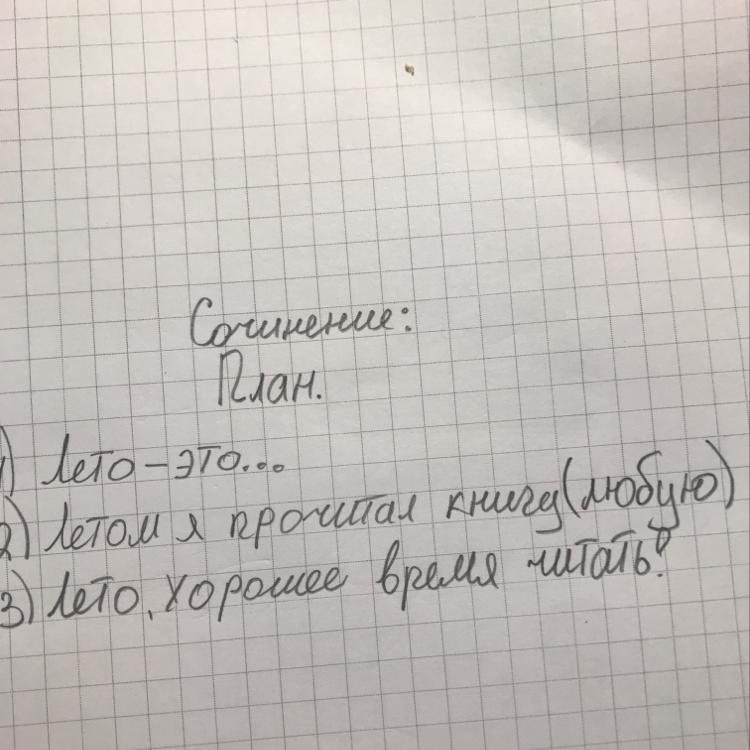 Сочинение:
План.
1) Лето - это...
2) Летом я прочитал книгу (любую)
3) Лето, хорошее время читать!